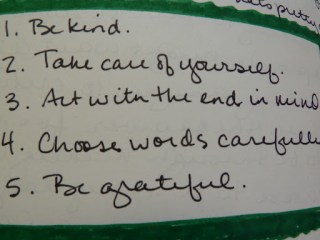 1. Be kind.
2. Take care of yourself.
3. Act with the end in mind
4. Choose words carefully
5. Be grateful.